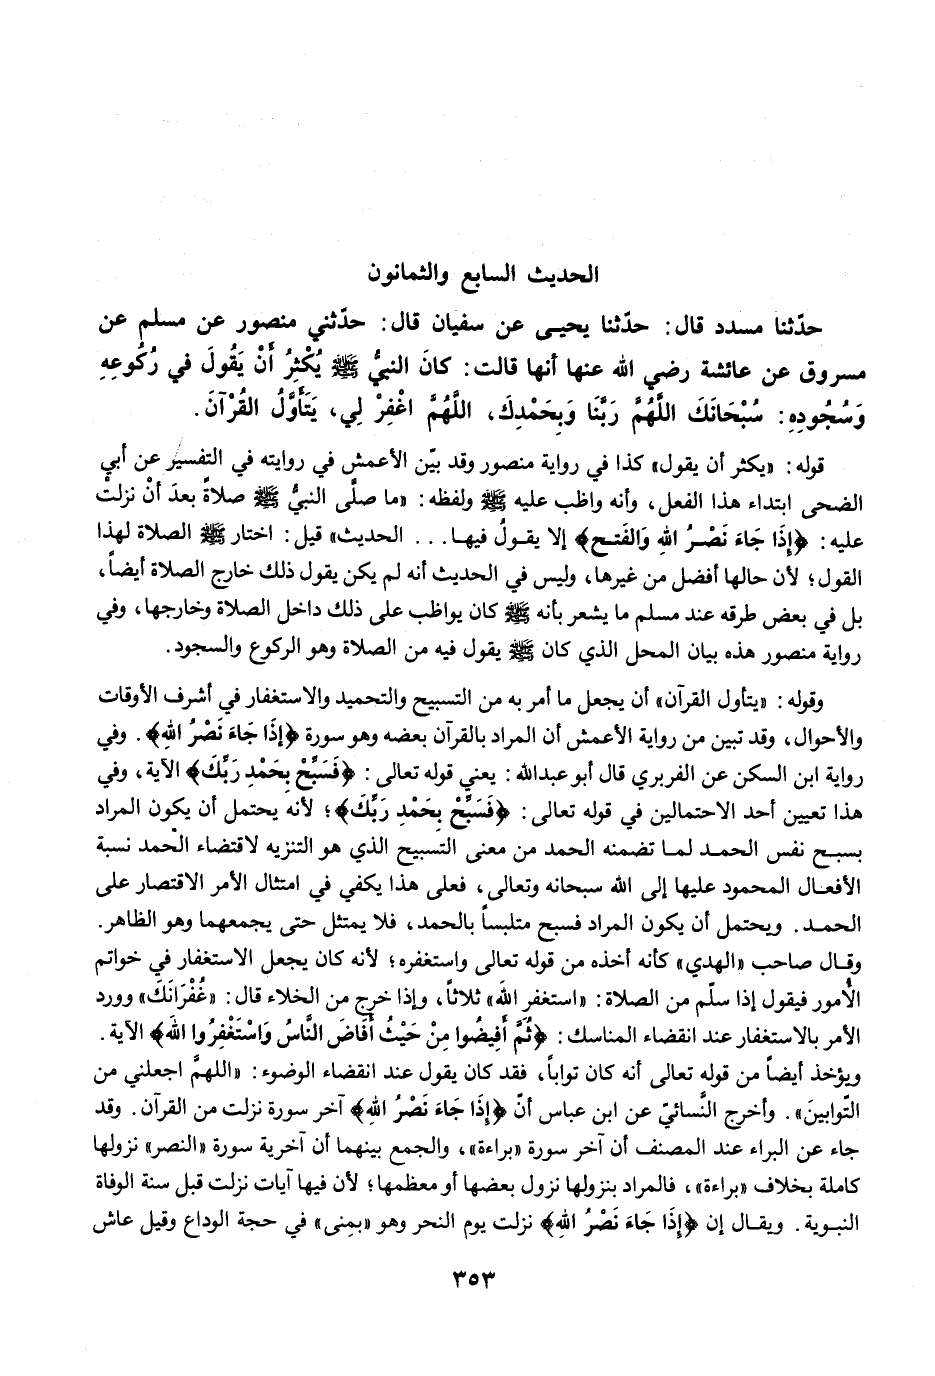 الحديث السابع والثمانون
حدّثنا مسدد قال: حدّثنا يحيى عن سفيان قال: حدّثني منصور عن مسلم عن
مسروق عن عائشة رضي الله عنها أنها قالت: كانَ النبيُّ ﷺ يُكْثِرُ أَنْ يَقُولَ في رُكُوعِهِ
وَسُجُودِهِ: سُبْحَانَكَ اللَّهُمَّ رَبَّنَا وَبِحَمْدِكَ، اللَّهُمَّ اغْفِرْ لِي، يَتَأَوَّلُ القُرْآنَ.
قوله: «يكثر أن يقول» كذا في رواية منصور وقد بيّن الأعمش في روايته في التفسير عن أبي
الضحى ابتداء هذا الفعل، وأنه واظب عليه ﷺ ولفظه: «ما صلَّى النبيُّ ﷺ صلاةً بعدَ أنْ نزلتْ
عليه: ﴿إِذَا جَاءَ نَصْرُ اللهِ وَالفَتح﴾ إلا يقولُ فيها... الحديث» قيل: اختار ﷺ الصلاة لهذا
القول؛ لأن حالها أفضل من غيرها، وليس في الحديث أنه لم يكن يقول ذلك خارج الصلاة أيضاً،
بل في بعض طرقه عند مسلم ما يشعر بأنه ﷺ كان يواظب على ذلك داخل الصلاة وخارجها، وفي
رواية منصور هذه بيان المحل الذي كان ﷺ يقول فيه من الصلاة وهو الركوع والسجود.
وقوله: «يتأول القرآن» أن يجعل ما أمر به من التسبيح والتحميد والاستغفار في أشرف الأوقات
والأحوال، وقد تبين من رواية الأعمش أن المراد بالقرآن بعضه وهو سورة ﴿إِذَا جَاءَ نَصْرُ اللهِ﴾. وفي
رواية ابن السكن عن الفربري قال أبو عبدالله: يعني قوله تعالى: ﴿فَسَبِّحْ بِحَمْدِ رَبِّكَ﴾ الآية، وفي
هذا تعيين أحد الاحتمالين في قوله تعالى: ﴿فَسَبِّحْ بِحَمْدِ رَبِّكَ﴾؛ لأنه يحتمل أن يكون المراد
بسبح نفس الحمد لما تضمنه الحمد من معنى التسبيح الذي هو التنزيه لاقتضاء الحمد نسبة
الأفعال المحمود عليها إلى الله سبحانه وتعالى، فعلى هذا يكفي في امتثال الأمر الاقتصار على
الحمد. ويحتمل أن يكون المراد فسبح متلبساً بالحمد، فلا يمتثل حتى يجمعهما وهو الظاهر.
وقال صاحب «الهدي» كأنه أخذه من قوله تعالى واستغفره؛ لأنه كان يجعل الاستغفار في خواتم
الأُمور فيقول إذا سلّم من الصلاة: «استغفر الله» ثلاثاً، وإذا خرج من الخلاء قال: «غُفْرَانَكَ» وورد
الأمر بالاستغفار عند انقضاء المناسك: ﴿ثُمَّ أَفِيضُوا مِنْ حَيْثُ أَفَاضَ النَّاسُ وَاسْتَغْفِرُوا اللهَ﴾ الآية.
ويؤخذ أيضاً من قوله تعالى أنه كان تواباً، فقد كان يقول عند انقضاء الوضوء: «اللهمَّ اجعلني من
التّوابينَ». وأخرج النَّسائيّ عن ابن عباس أنّ ﴿إِذَا جَاءَ نَصْرُ اللهِ﴾ آخر سورة نزلت من القرآن. وقد
جاء عن البراء عند المصنف أن آخر سورة «براءة»، والجمع بينهما أن آخرية سورة «النصر» نزولها
كاملة بخلاف «براءة»، فالمراد بنزولها نزول بعضها أو معظمها؛ لأن فيها آيات نزلت قبل سنة الوفاة
النبوية. ويقال إن ﴿إِذَا جَاءَ نَصْرُ اللهِ﴾ نزلت يوم النحر وهو «بمنى» في حجة الوداع وقيل عاش
٣٥٣